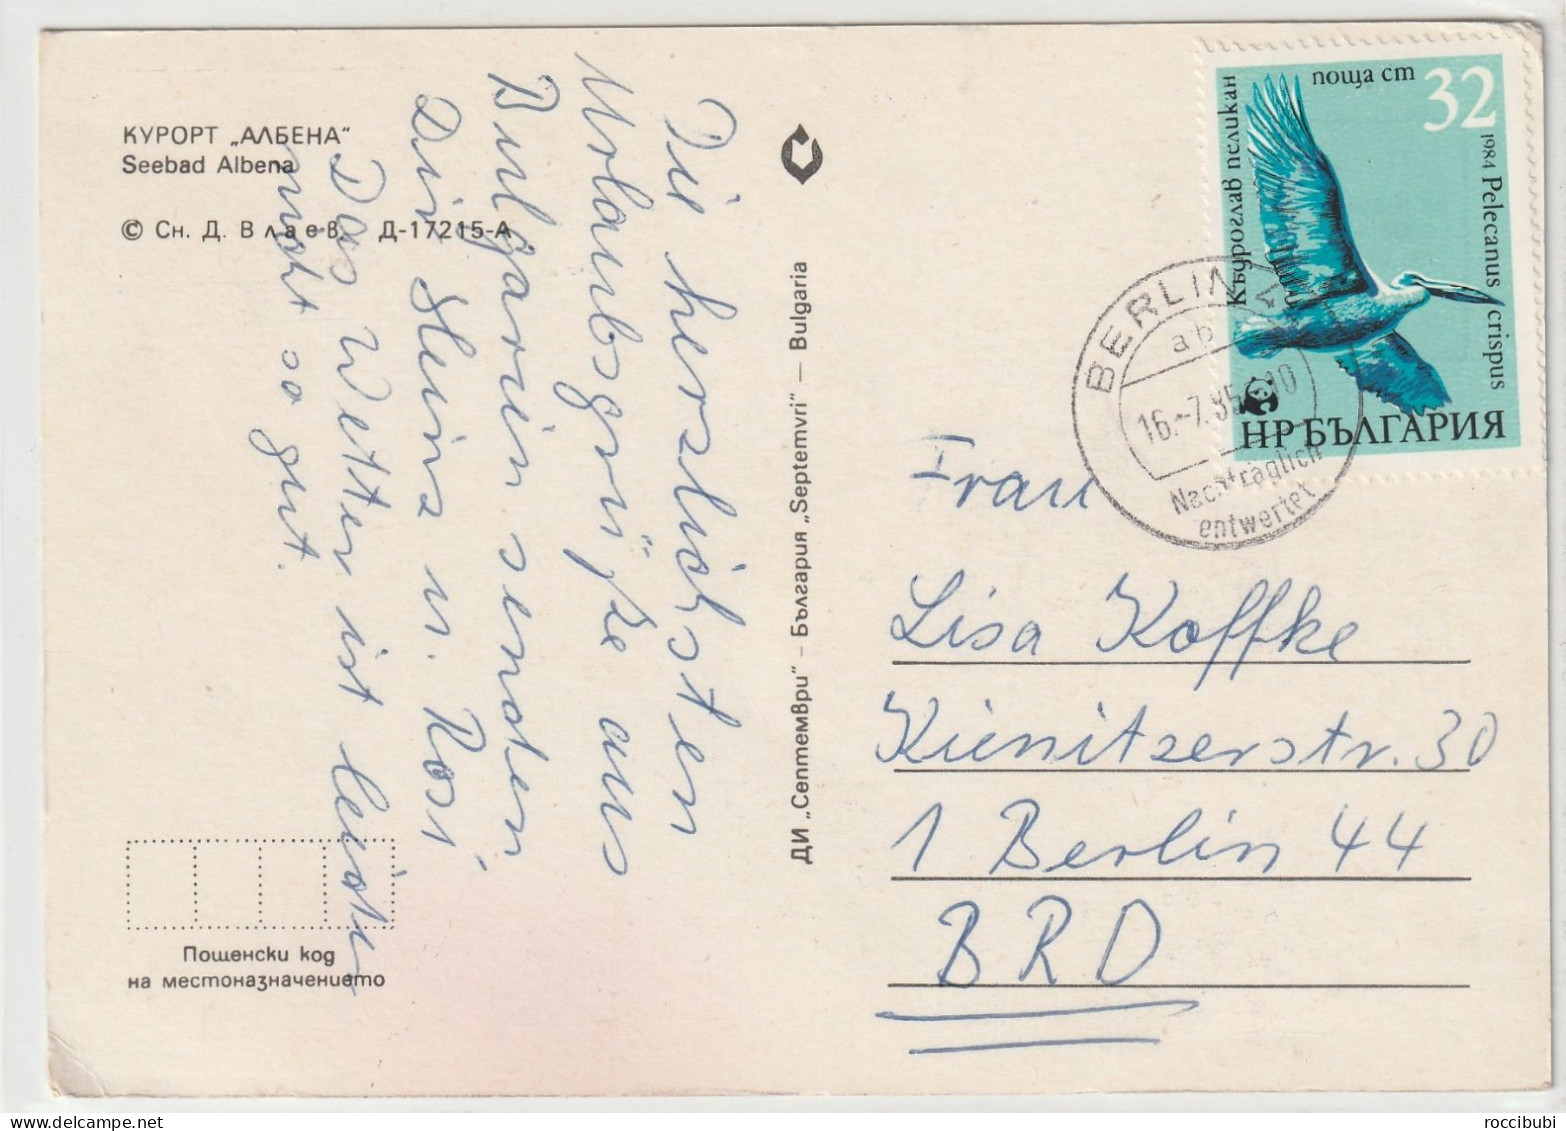 КУРОРТ „АЛБЕНА“
Seebad Albena
© Сн. Д. Влаев. Д-17215-А
Die herzlichsten
Urlaubsgrüße aus
Bulgarien senden
Dir Heinz u. Rosi
Das Wetter ist leider
nicht so gut.
Пощенски код
на местоназначението
ДИ „Септември“ – България „Septemvri“ – Bulgaria
поща ст 32
Къдроглав пеликан
1984 Pelecanus crispus
НР БЪЛГАРИЯ
BERLIN
ab
16.-7.85 - 10
Nachträglich
entwertet
Frau
Lisa Koffke
Kienitzerstr. 30
1 Berlin 44
BRD
roccibubi